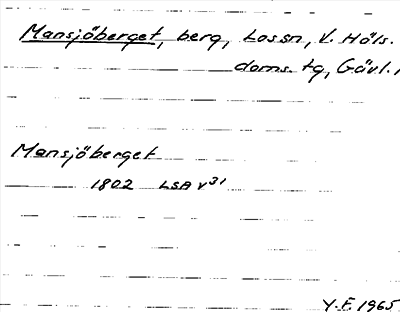 Mansjöberget, berg, Lossn, V. Häls.
doms. tg, Gävl. l
Mansjöberget
1802 LSA V31
Y. E. 1965